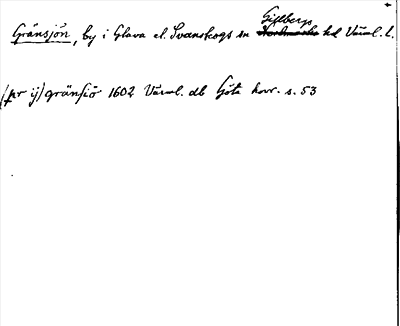 Gränsjön, by i Glava el. Svanskogs sn Gillbergs hd Värml. l.
(pr ij) gränsiö 1602 Värml. db Göta hovr. s. 53